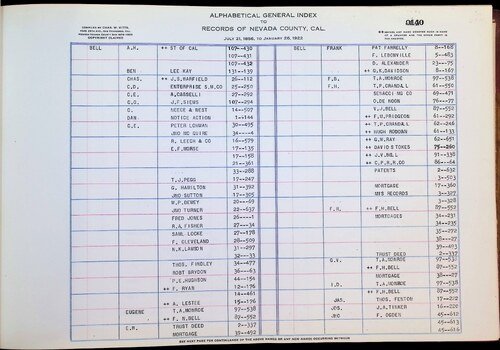 ALPHABETICAL GENERAL INDEX
TO
RECORDS OF NEVADA COUNTY, CAL.
JULY 31, 1856, TO JANUARY 26, 1922
0140
BELL A.H. ↔ ST OF CAL 107-430
107-430
107-432
BEN LEE KAY 131-139
CHAS. ↔ J.S. BARFIELD 26-112
C.D. ENTERPRISE S.M.CO 25-250
C.E. A. CASSELLI 27-292
C.G. J.F. SIEMS 107-294
C. REESE & BEST 14-507
DAN. NOTICE ACTION 1-144
G.E. PETER LOHMAN 30-405
JNO MC GUIRE 34----4
R. LEECH & CO 16-579
E.F. MORSE 17-135
17-158
21-361
33-288
T.J. PEGG 17-247
G. HAMILTON 31-392
JNO SUTTON 17-305
W.P. DEWEY 26--69
JNO TURNER 22-637
FRED JONES 26---1
R.A. FISHER 27--34
SAML LOCKE 27-178
F. CLEVELAND 28-509
H.K. LAWSON 31-297
32--33
THOS. FINDLEY 34-477
ROBT BRYDON 36--63
P.E. HUGHSON 44-154
↔ F. RYAN 12-176
14-461
↔ A. LESTEE 15-196
EUGENE T.A. MONROE 97-538
↔ F.H. BELL 87-552
E.M. TRUST DEED 2-337
MORTGAGE 38-492
BELL FRANK PAT FARRELLY 8-168
F. LEBONVILLE 5-483
D. ALEXANDER 23--75
↔ G.H. DAVIDSON 8-167
F.B. T.A. MONROE 97-538
F.H. T.P. GRAND&L 61-550
69-431
O. DE NOON 76--77
T.J. BELL 87-552
61-292
↔ T.P. GRAND&L 62-246
↔ HUGH HODSON 61-133
↔ G.W. RAY 62-651
↔ DAVID STOKES 75-260
↔ J.V. BELL 91-338
↔ C.P.R.R. CO 86--64
PATENTS 2-632
3-503
MORTGAGE 17-360
MIS RECORDS 3-327
3-328
F.R. ↔ F.H. BELL 87-552
MORTGAGES 34-231
34-235
35-292
38-27
39-493
TRUST DEED 2-337
G.V. T.A. MONROE 97-538
↔ F.H. BELL 87-552
MORTGAGE 38--27
I.D. T.A. MONROE 97-538
↔ F.H. BELL 87-552
JAS. THOS. FENTON 15--22
JOS. J.A. TINKER 16-229
JNO F. OGDEN 45-613
45-614